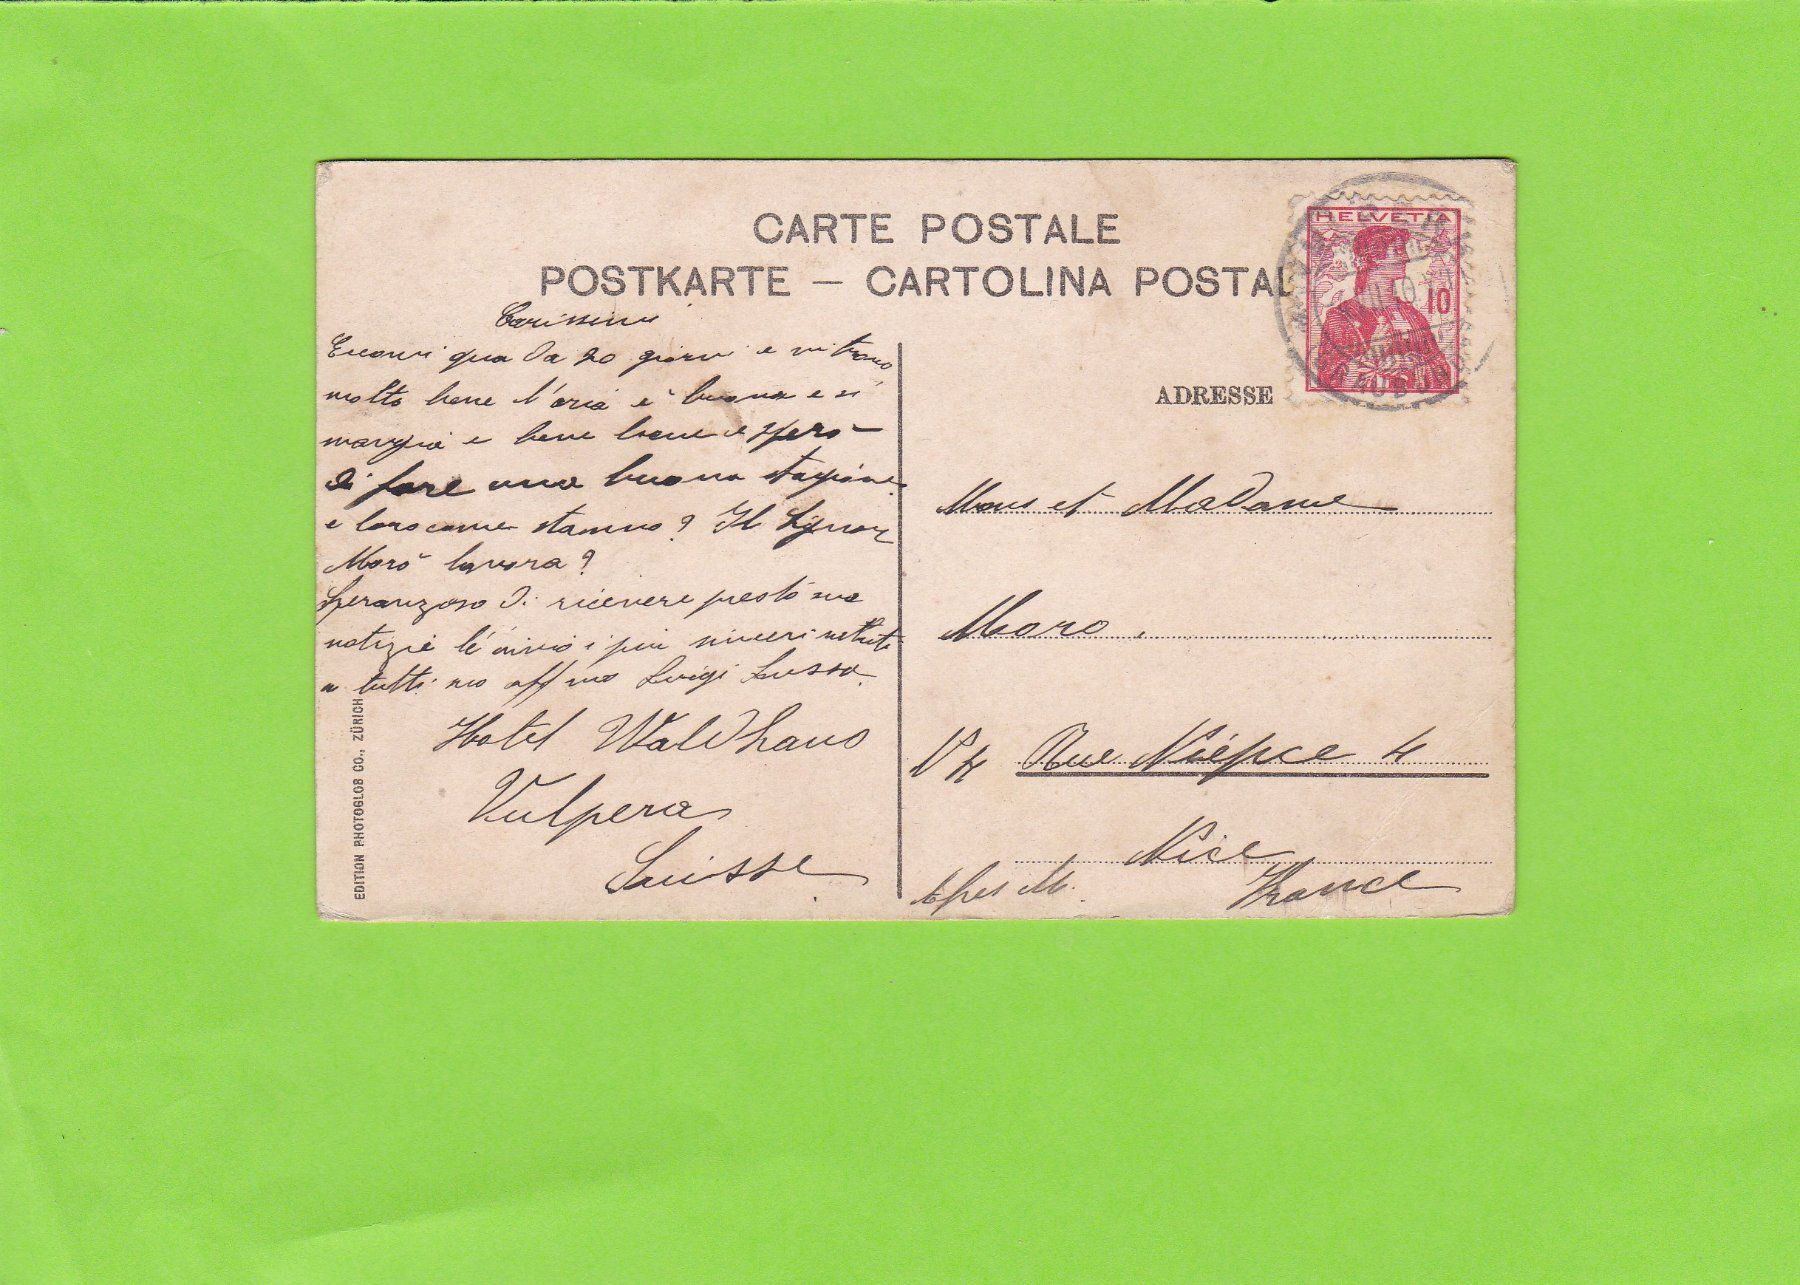 CARTE POSTALE
POSTKARTE — CARTOLINA POSTAL
HELVETIA
10
ADRESSE
Carissimi
Eccomi qua da 20 giorni e mi trovo
molto bene l'aria è buona e si
mangia e beve bene e spero
di fare una buona stagione
e loro come stanno? Il Signor
Moro lavora?
Speranzoso di ricevere presto sue
notizie le invio i più sinceri saluti
a tutti suo aff mo Luigi Lusso
Hotel Waldhaus
Vulpera
Suisse
EDITION PHOTOGLOB CO., ZÜRICH
Mons et Madame
Moro
Rue Niépce 4
Nice
France